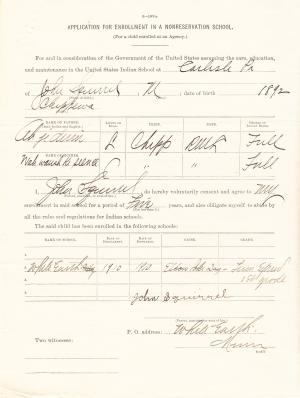 APPLICATION FOR ENROLLMENT IN A NONRESERVATION SCHOOL.
(For a child enrolled at an Agency.)
For and in consideration of the Government of the United States assuming the care, education,
and maintenance in the United States Indian School at Carlisle Pa
John Squirrel, M, date of birth 1892
Chippewa
NAME OF FATHER. LIVING OR DEAD. TRIBE. BAND. DEGREE OF INDIAN BLOOD.
L Chipp Full
NAME OF MOTHER.
" " Full
I, John Squirrel do hereby voluntarily consent and agree to my
enrollment in said school for a period of Five years, and also obligate myself to abide by
all the rules and regulations for Indian schools.
The said child has been enrolled in the following schools:
NAME OF SCHOOL. DATE OF ENROLLMENT. DATE OF DISCHARGE. CAUSE. GRADE.
White Earth 1910
grade
John Squirrel
P. O. address: White Earth
Minn
Two witnesses: